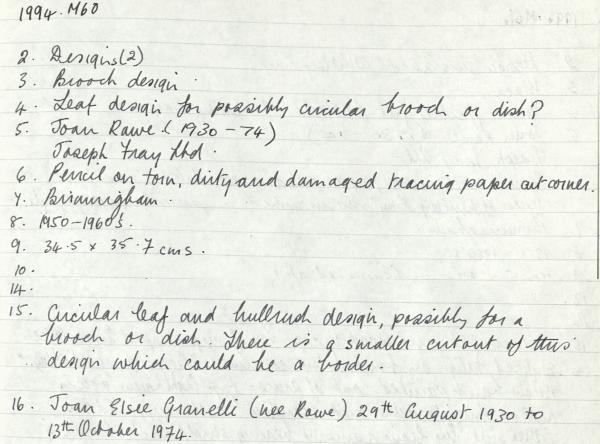 1994. M60
2. Designs(2)
3. Brooch design.
4. Leaf design for possibly circular brooch or dish?
5. Joan Rawe (1930-74)
Joseph Fray Ltd.
6. Pencil on torn, dirty and damaged tracing paper cut corner.
7. Birmingham.
8. 1950-1960's.
9. 34.5 x 35.7 cms.
10.
14.
15. Circular leaf and bullrush design, possibly for a
brooch or dish. There is a smaller cutout of this
design which could be a border.
16. Joan Elsie Granelli (nee Rawe) 29th August 1930 to
13th October 1974.